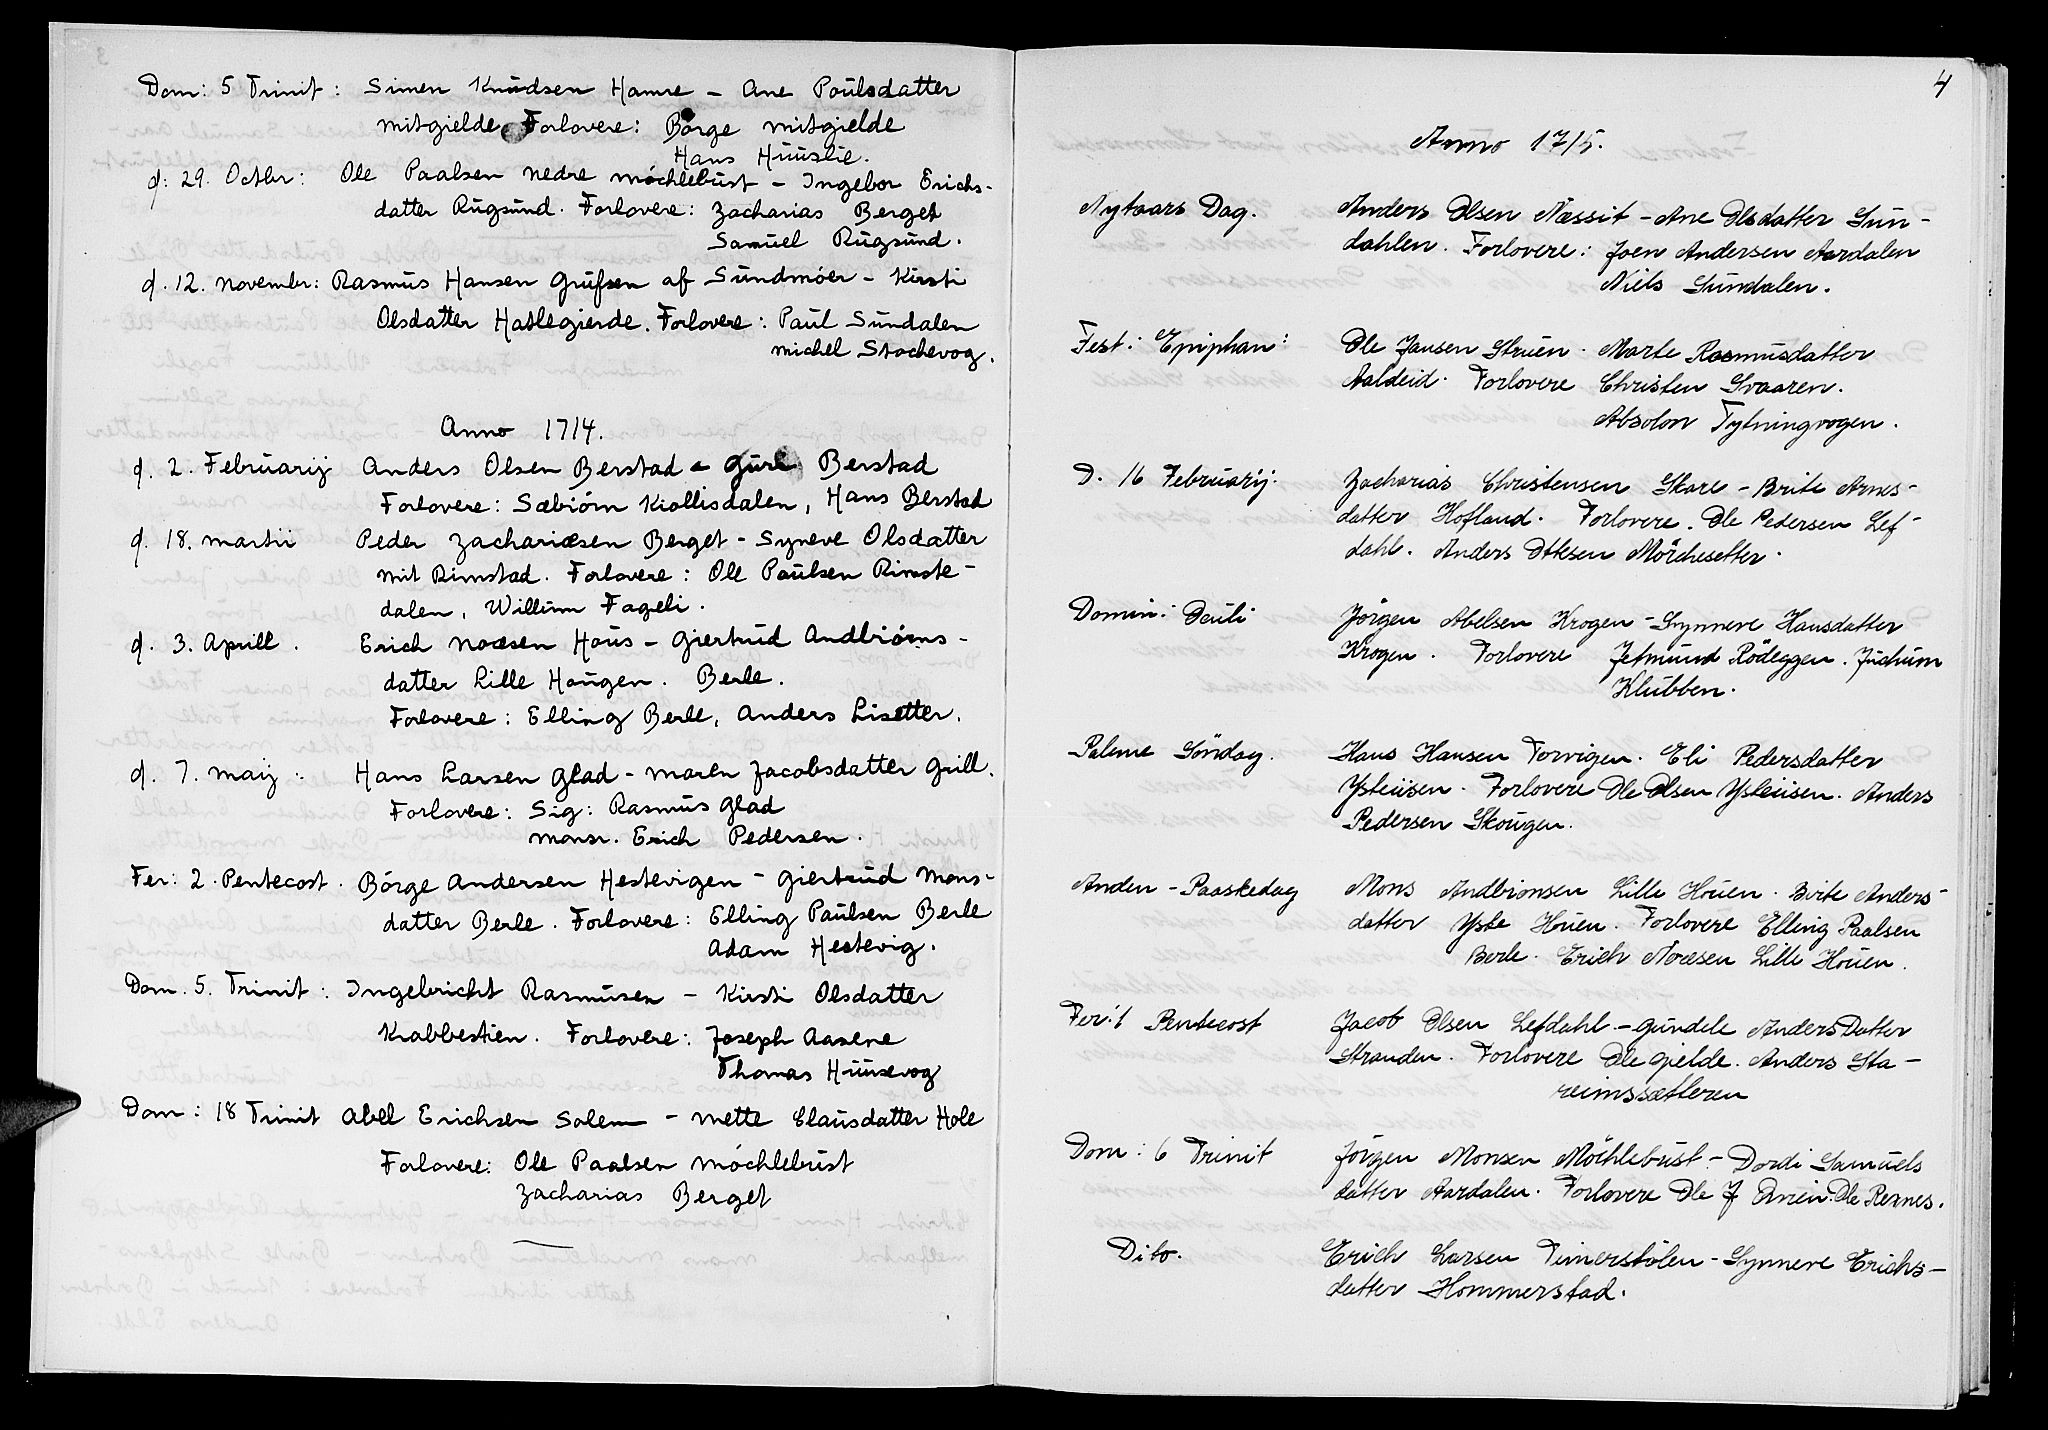 Dom: 5 Trinit: Simen Knudsen Hamre - Ane Poulsdatter
mitgielde Forlovere: Børge mitgielde
Hans Huuslie.
d: 29. Octbr: Ole Paalsen nedre møchlebust - Ingebor Erichs-
datter Rugsund. Forlovere: Zacharias Berget
Samuel Rugsund.
d. 12. Novembr: Rasmus Hansen Grufsen af Sundmøer - Kirsti
Olsdatter Haslegierde. Forlovere: Paul Sundalen
michel Stochevog.
Anno 1714.
d. 2. Februarij Anders Olsen Berstad - Guri Berstad
Forlovere: Sæbiørn Kiollisdalen, Hans Berstad
d. 18. martii Peder Zachariæsen Berget - Syneve Olsdatter
mit Rimstad. Forlovere: Ole Paulsen Rimste-
dalen, Willum Fageli.
d. 3. Aprill. Erich Noæsen Hous - Giertrud Andbiørns-
datter Lille Hougen. Berle.
Forlovere: Elling Berle, Anders Lisetter.
d. 7. maij: Hans Larsen Glad - maren Jacobsdatter Grill.
Forlovere: Sig: Rasmus Glad
monsr. Erich Pedersen.
Fer: 2. Pentecost. Børge Andersen Hestevigen - Giertrud Mons-
datter Berle. Forlovere: Elling Paulsen Berle
Adam Hestevig.
Dom. 5. Trinit: Ingebricht Rasmusen - Kirsti Olsdatter
Krabbestien. Forlovere: Joseph Aasene
Thomas Huusevog
Dom: 18 Trinit Abel Erichsen Solem - mette Clausdatter Hole
Forlovere: Ole Paalsen møchlebust
Zacharias Berget
4
Anno 1715.
Nytaars Dag. Anders Olsen Næssit - Ane Olsdatter Sun-
dahlen. Forlovere: Joen Andersen Aardalen
Niels Sundalen.
Fest: Epiphan: Ole Jansen Struen. Marte Rasmusdatter
Aaldeid. Forlovere Christen Svaaren.
Absolon Tytningvogen.
D. 16 Februarij. Zacharias Christensen Skare - Brite Arnes-
datter Hofland. Forlovere. Ole Pedersen Lef-
dahl. Anders Ottesen Mørchesetter.
Domin: Pauli Jørgen Abelsen Krogen - Synneve Hansdatter
Krogen. Forlovere Jetmund Rødeggen. Jochum
Klubben.
Palme Søndag. Hans Hansen Torvigen. Eli Pedersdatter
Ysteiisen. Forlovere Ole Olsen Ysteiisen. Anders
Pedersen Skougen.
Anden - Paaskedag Mons Andbionsen Lille Houen. Birte Anders-
datter Yste Houen. Forlovere Elling Paalsen
Berle. Erich Noæsen Lille Houen.
Fer: 1 Pentecost Jacob Olsen Lefdahl - Gundele AndersDatter
Stranden. Forlovere Ole Gjelde. Anders Sta-
reimssætteren
Dom: 6 Trinit Jørgen Monsen Møchlebust - Dordi Samuels
datter Aardalen. Forlovere Ole J Ole Rexnes.
Dito. Erich Larsen Timerstølen - Synneve Erichs-
datter Hommerstad.